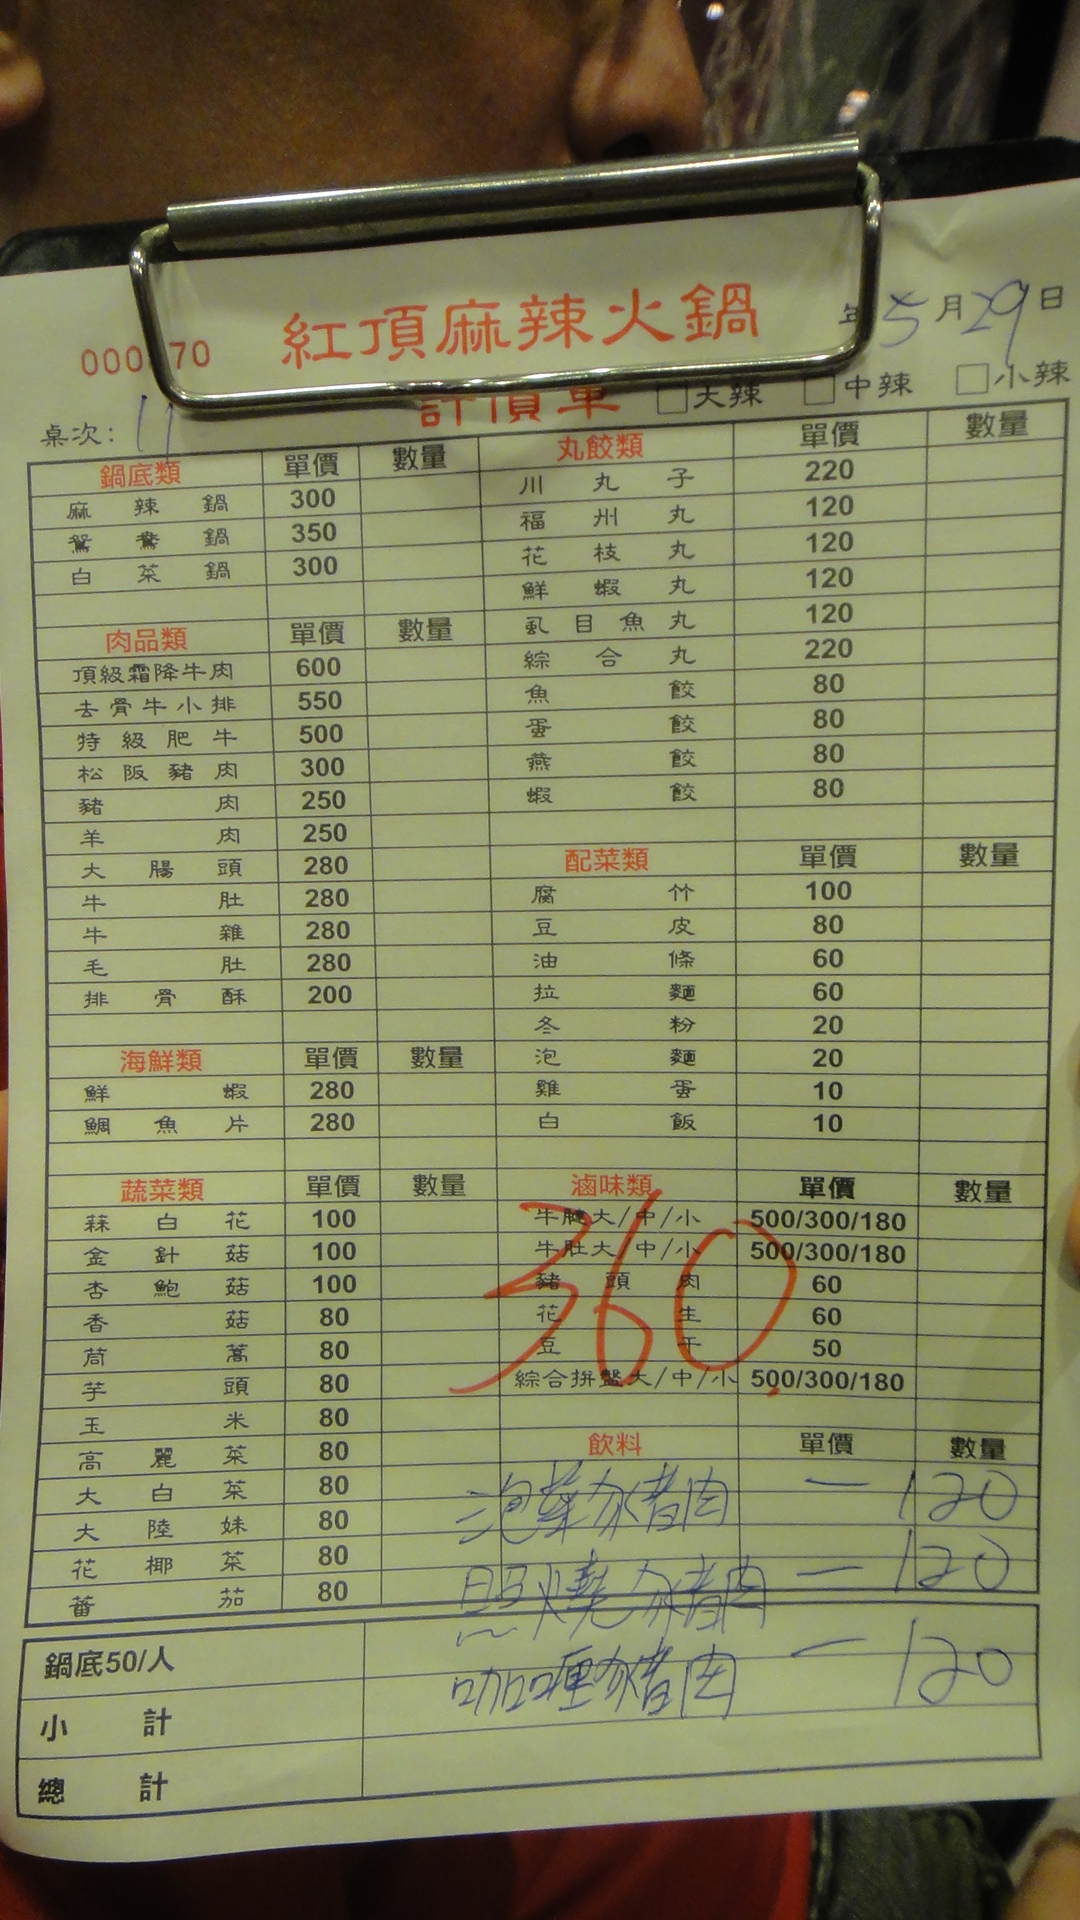 紅頂麻辣火鍋
年 5 月 29 日
70
計價單
□大辣 □中辣 □小辣
桌次: 11
鍋底類 單價 數量
麻辣鍋 300
鴛鴦鍋 350
白菜鍋 300
肉品類 單價 數量
頂級霜降牛肉 600
去骨牛小排 550
特級肥牛 500
松阪豬肉 300
豬肉 250
羊肉 250
大腸頭 280
牛肚 280
牛雜 280
毛肚 280
排骨酥 200
海鮮類 單價 數量
鮮蝦 280
鯛魚片 280
蔬菜類 單價 數量
蒜白花 100
金針菇 100
杏鮑菇 100
香菇 80
茼蒿 80
芋頭 80
玉米 80
高麗菜 80
大白菜 80
大陸妹 80
花椰菜 80
蕃茄 80
丸餃類 單價 數量
川丸子 220
福州丸 120
花枝丸 120
鮮蝦丸 120
虱目魚丸 120
綜合丸 220
魚餃 80
蛋餃 80
燕餃 80
蝦餃 80
配菜類 單價 數量
腐竹 100
豆皮 80
油條 60
拉麵 60
冬粉 20
泡麵 20
雞蛋 10
白飯 10
滷味類 單價 數量
牛腱大/中/小 500/300/180
牛肚大/中/小 500/300/180
豬頭肉 60
花生 60
豆干 50
綜合拼盤大/中/小 500/300/180
360.
飲料 單價 數量
泡菜豬肉 一 120
照燒豬肉 一 120
咖哩豬肉 一 120
鍋底50/人
小計
總計